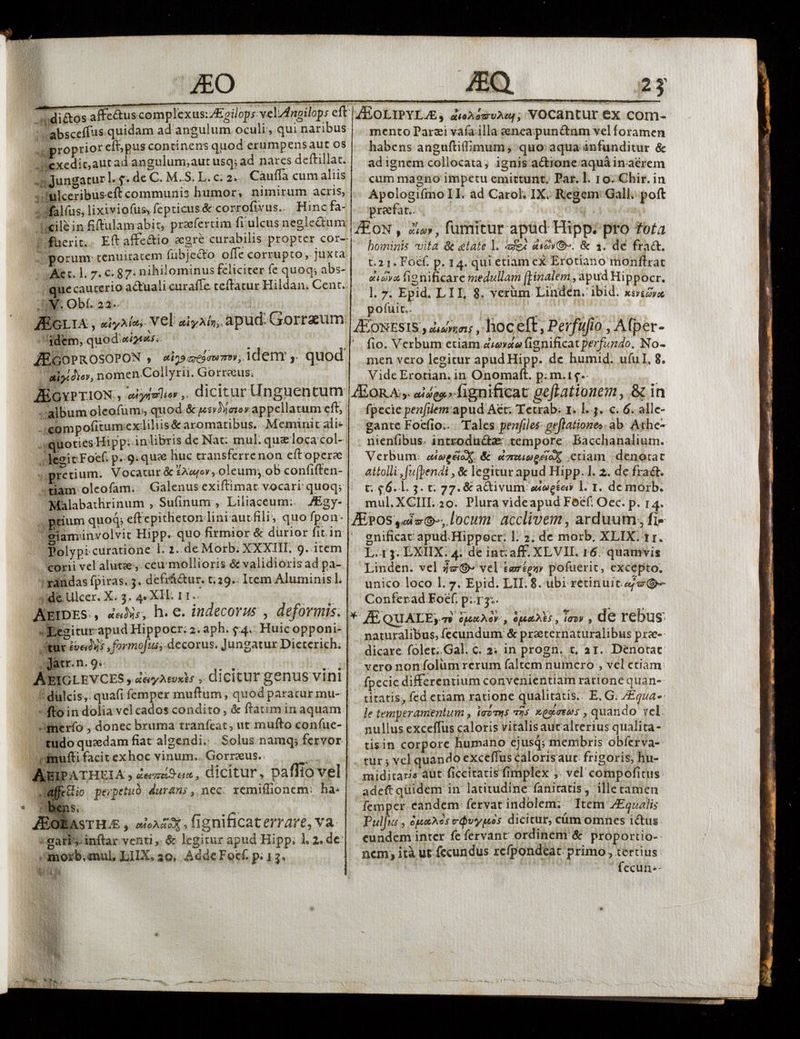 ÆO ÆQ 25
dictos affectus complexus: Ægilops vel Angilops est
abscessus quidam ad angulum oculi, qui naribus
proprior est, pus continens quod erumpens aut os
exedit, aut ad angulum, aut usq; ad nares destillat.
Jungatur l. 5. de C. M. S. L. c. 2. Caussa cum aliis
ulceribus est communis humor, nimirum acris,
falsus, lixiviosus, septicus & corrosivus. Hinc fa-
cile in fistulam abit, præsertim si ulcus neglectum
fuerit. Est affectio ægre curabilis propter cor-
porum tenuitatem subjecto osse corrupto, juxta
Aet. l. 7. c. 87. nihilominus feliciter se quoq; abs-
que cauterio actuali curasse testatur Hildan. Cent.
V. Obs. 22.
ÆGLIA, αἰγλία, vel αἰγλίη, apud Gorræum
idem, quod αἰγίας.
ÆGOPROSOPON, αἰγοπρόσωπον, idem, quod
αἰγίδιον, nomen Collyrii. Gorræus.
ÆGYPTION, αἰγύπτιον, dicitur Unguentum
album oleosum, quod & μενδήσιον appellatum est,
compositum ex liliis & aromatibus. Meminit ali-
quoties Hipp. in libris de Nat. mul. quæ loca col-
legit Foës. p. 9. quæ huc transferre non est operæ
pretium. Vocatur & ἔλαιον, oleum, ob consisten-
tiam oleosam. Galenus existimat vocari quoq;
Malabathrinum, Susinum, Liliaceum. Ægy-
ptium quoq; est epitheton lini aut fili, quo spon-
giam involvit Hipp. quo firmior & durior sit in
Polypi curatione l. 2. de Morb. XXXIII. 9. item
corii vel alutæ, ceu mollioris & validioris ad pa-
randas spiras. 3. de fract. t. 29. Item Aluminis l.
de Ulcer. X. 3. 4. XII. 11.
AEIDES, ἀειδής, h. e. indecorus, deformis.
Legitur apud Hippocr. 2. aph. 54. Huic opponi-
tur ἐυειδής, formosus, decorus. Jungatur Dieterich.
Jatr. n. 9.
AEIGLEVCES, ἀειγλευκὲς, dicitur genus vini
dulcis, quasi semper mustum, quod paratur mu-
sto in dolia vel cados condito, & statim in aquam
merso, donec bruma transeat, ut musto consue-
tudo quædam fiat algendi. Solus namq; fervor
musti facit ex hoc vinum. Gorræus.
AEIPATHEIA, ἀειπάθεια, dicitur, passio vel
affectio perpetuò durans, nec remissionem ha-
bens.
ÆOLASTHÆ, αἰολᾶσθαι, significat errare, va-
gari, instar venti, & legitur apud Hipp. l. 2. de
morb. mul. LIIX. 20. Adde Foës. p. 13.
ÆOLIPYLÆ, αἰολόπυλαι, vocantur ex com-
mento Paræi vasa illa ænea punctum vel foramen
habens angustissimum, quo aqua infunditur &
ad ignem collocata, ignis actione aquâ in aërem
cum magno impetu emittunt. Par. l. 10. Chir. in
Apologismo II. ad Carol. IX. Regem Gall. post
præfat.
ÆON, αἰων, sumitur apud Hipp. pro tota
hominis vita & ætate l. περὶ αἰῶν⊙. & 2. de fract.
t. 21. Foës. p. 14. qui etiam ex Erotiano monstrat
αἰῶνα significare medullam spinalem, apud Hippocr.
l. 7. Epid. LII. 8. verùm Linden. ibid. κενεῶνα
posuit.
ÆONESIS, αἰώνησις, hoc est, Perfusio, Asper-
sio. Verbum etiam αἰωνάω significat perfundo. No-
men vero legitur apud Hipp. de humid. usu I. 8.
Vide Erotian. in Onomast. p. m. 15.
ÆORA, αἰώρα, significat gestationem, & in
specie pensilem apud Aët. Tetrab. 1. l. 3. c. 6. alle-
gante Foësio. Tales pensiles gestationes ab Athe-
niensibus introductæ tempore Bacchanalium.
Verbum αἰωρεῖσθαι & ἀπαιωρεῖσθαι etiam denotat
attolli, suspendi, & legitur apud Hipp. l. 2. de fract.
t. 56. l. 3. t. 77. & activum αἰωρέειν l. 1. de morb.
mul. XCIII. 20. Plura vide apud Foës. Oec. p. 14.
ÆPOS, αἶπ⊙, locum acclivem, arduum, si-
gnificat apud Hippocr. l. 2. de morb. XLIX. 11.
L. 13. LXIIX. 4. de int. aff. XLVII. 16. quamvis
Linden. vel ἦπ⊙ vel ἑσπέρην posuerit, excepto
unico loco l. 7. Epid. LII. 8. ubi retinuit αἶπ⊙
Conferad Foës. p. 15.
* ÆQUALE, τὸ ὁμαλὸν, ὁμαλὲς, ἴσον, de rebus
naturalibus, secundum & præternaturalibus præ-
dicare solet. Gal. c. 2. in progn. t. 21. Denotat
vero non solùm rerum saltem numero, vel etiam
specie differentium convenientiam ratione quan-
titatis, sed etiam ratione qualitatis. E. G. Æqua-
le temperamentum, ἰσότης τῆς κράσεως, quando vel
nullus excessus caloris vitalis aut alterius qualita-
tis in corpore humano ejusq; membris observa-
tur; vel quando excessus caloris aut frigoris, hu-
miditatis aut siccitatis simplex, vel compositus
adest quidem in latitudine sanitatis, ille tamen
semper eandem servat indolem. Item Æqualis
Pulsus, ὁμαλὸς σφυγμὸς dicitur, cùm omnes ictus
eundem inter se servant ordinem & proportio-
nem, ità ut secundus respondeat primo, tertius
secun-